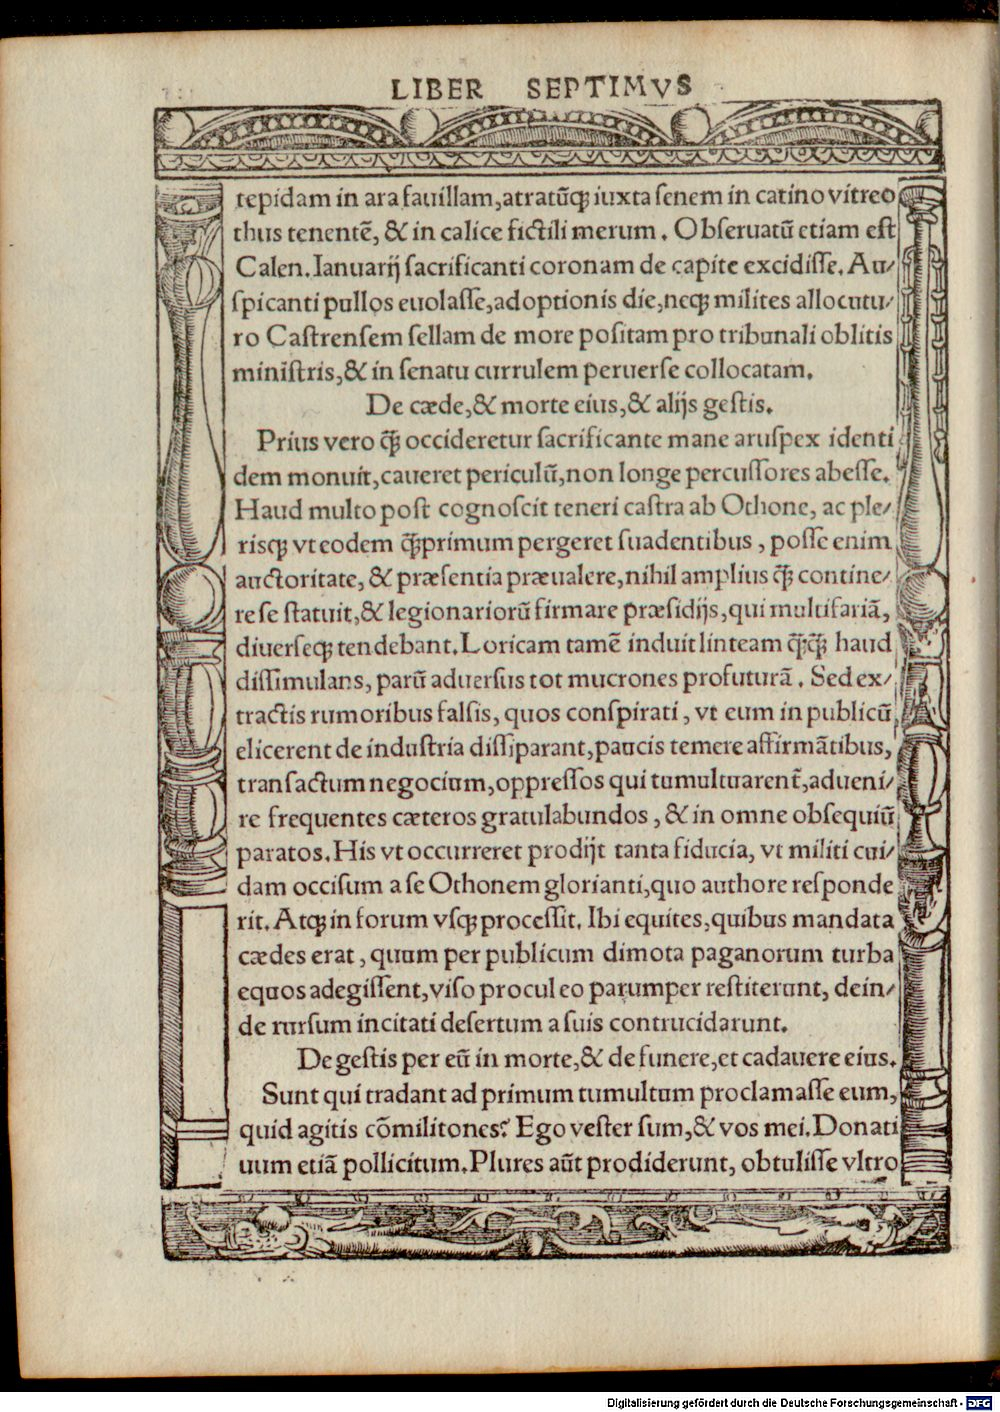 LIBER SEPTIMVS
tepidam in ara fauillam,atratũq; iuxta senem in catino vitreo
thus tenentẽ, & in calice fictili merum. Obseruatũ etiam est
Calen.Ianuarij sacrificanti coronam de capite excidisse. Au/
spicanti pullos euolasse,adoptionis die,neq; milites allocutu/
ro Castrensem sellam de more positam pro tribunali oblitis
ministris,& in senatu currulem peruerse collocatam.
De cæde,& morte eius,& alijs gestis.
Prius vero q̃ occideretur sacrificante mane aruspex identi
dem monuit,caueret periculũ,non longe percussores abesse.
Haud multo post cognoscit teneri castra ab Othone, ac ple/
risq; vt eodem q̃primum pergeret suadentibus, posse enim
auctoritate, & præsentia præualere,nihil amplius q̃ contine/
re se statuit,& legionariorũ firmare præsidijs,qui multifariã,
diuerseq; tendebant.Loricam tamẽ induit linteam q̃q̃ haud
dissimulans, parũ aduersus tot mucrones profuturã. Sed ex/
tractis rumoribus falsis, quos conspirati, vt eum in publicũ
elicerent de industria dissiparant,paucis temere affirmãtibus,
transactum negocium,oppressos qui tumultuarent̃,adueni/
re frequentes cæteros gratulabundos, & in omne obsequiũ
paratos.His vt occurreret prodijt tanta fiducia, vt militi cui/
dam occisum a se Othonem glorianti,quo authore responde
rit. Atq; in forum vsq; processit. Ibi equites,quibus mandata
cædes erat, quum per publicum dimota paganorum turba
equos adegissent,viso procul eo parumper restiterunt, dein/
de rursum incitati desertum a suis contrucidarunt.
De gestis per eũ in morte,& de funere,et cadauere eius.
Sunt qui tradant ad primum tumultum proclamasse eum,
quid agitis cõmilitones? Ego vester sum,& vos mei.Donati
uum etiã pollicitum.Plures aũt prodiderunt, obtulisse vltro
Digitalisierung gefördert durch die Deutsche Forschungsgemeinschaft - DFG